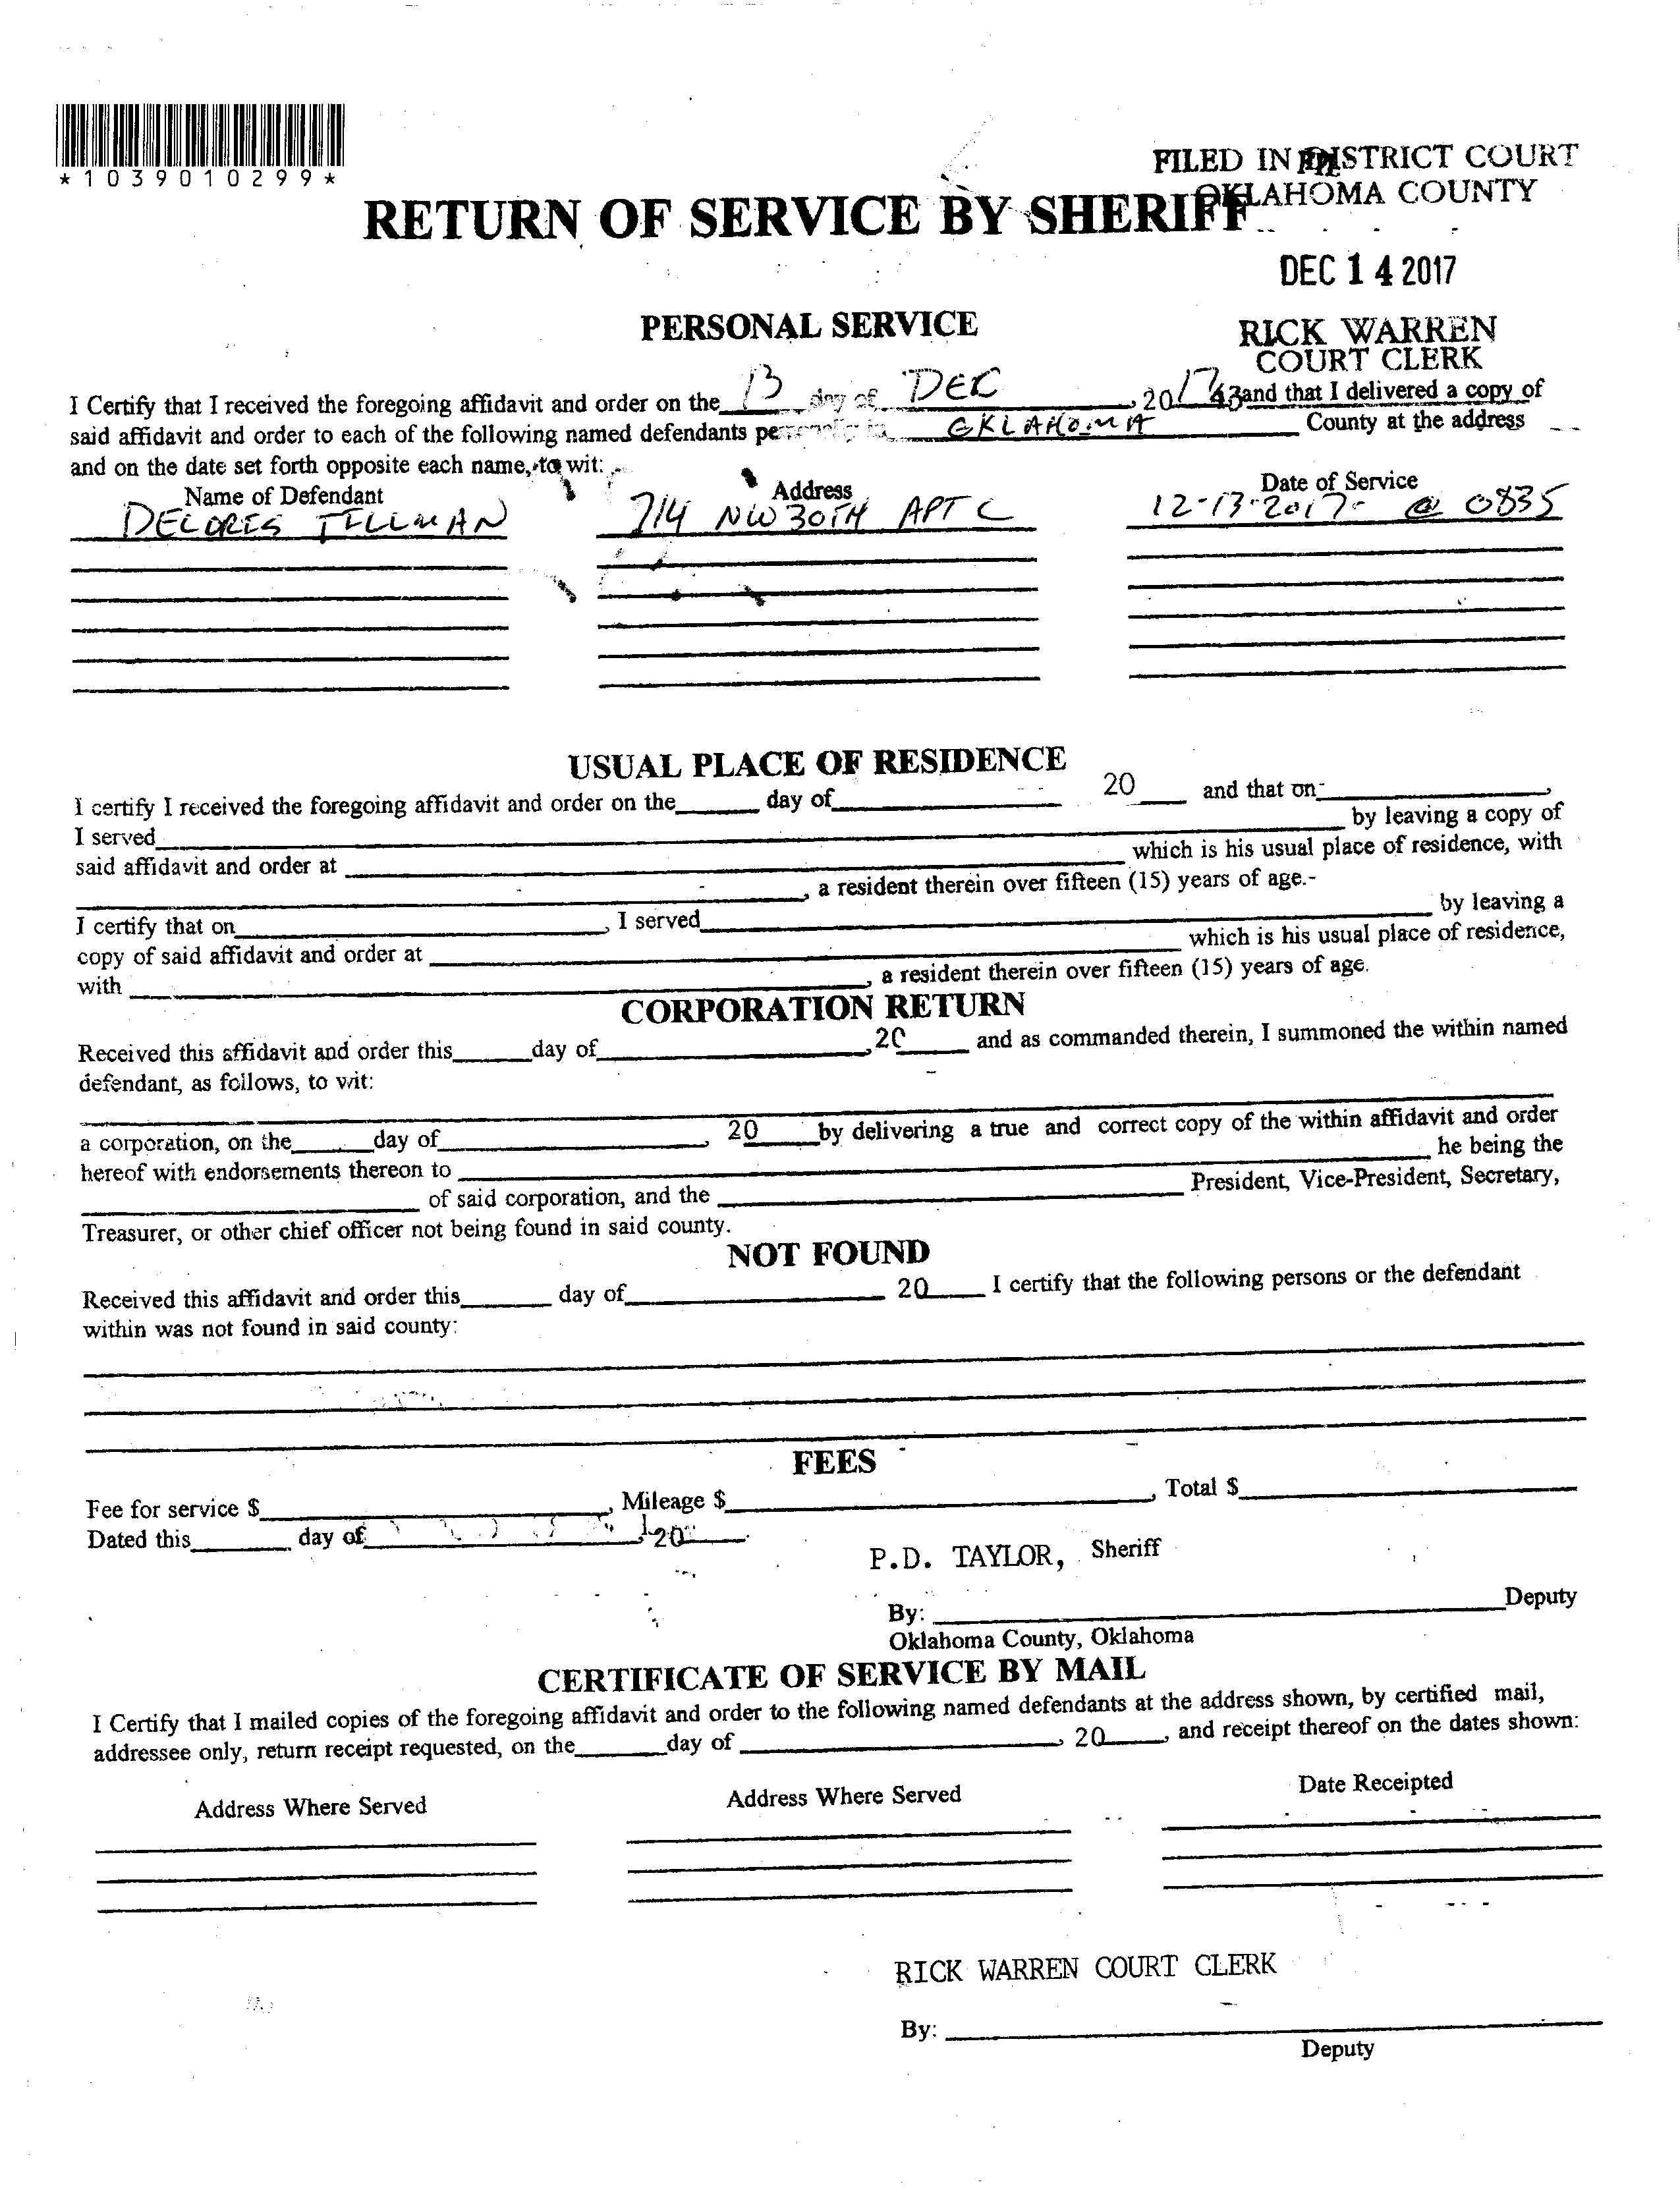 *1039010299*
FILED IN DISTRICT COURT
OKLAHOMA COUNTY
RETURN OF SERVICE BY SHERIFF
DEC 14 2017
PERSONAL SERVICE
RICK WARREN
COURT CLERK
I Certify that I received the foregoing affidavit and order on the 13 day of DEC, 2017 and that I delivered a copy of
said affidavit and order to each of the following named defendants personally in OKLAHOMA County at the address
and on the date set forth opposite each name, to wit:
Name of Defendant Address Date of Service
DELORES TILLMAN 714 NW 30TH APT C 12-13-2017- @ 0835
USUAL PLACE OF RESIDENCE
I certify I received the foregoing affidavit and order on the____ day of____ 20____ and that on____,
I served____ by leaving a copy of
said affidavit and order at ____ which is his usual place of residence, with
____, a resident therein over fifteen (15) years of age.-
I certify that on____, I served____ by leaving a
copy of said affidavit and order at ____ which is his usual place of residence,
with ____, a resident therein over fifteen (15) years of age.
CORPORATION RETURN
Received this affidavit and order this____day of____, 20____ and as commanded therein, I summoned the within named
defendant, as follows, to wit:
a corporation, on the____day of____, 20____by delivering a true and correct copy of the within affidavit and order
hereof with endorsements thereon to ____ he being the
____ of said corporation, and the ____ President, Vice-President, Secretary,
Treasurer, or other chief officer not being found in said county.
NOT FOUND
Received this affidavit and order this____ day of____ 20____ I certify that the following persons or the defendant
within was not found in said county:
FEES
Fee for service $____, Mileage $____, Total $____
Dated this____ day of____, 20____.
P.D. TAYLOR, Sheriff
By: ____Deputy
Oklahoma County, Oklahoma
CERTIFICATE OF SERVICE BY MAIL
I Certify that I mailed copies of the foregoing affidavit and order to the following named defendants at the address shown, by certified mail,
addressee only, return receipt requested, on the____day of ____, 20____, and receipt thereof on the dates shown:
Address Where Served Address Where Served Date Receipted
RICK WARREN COURT CLERK
By: ____
Deputy